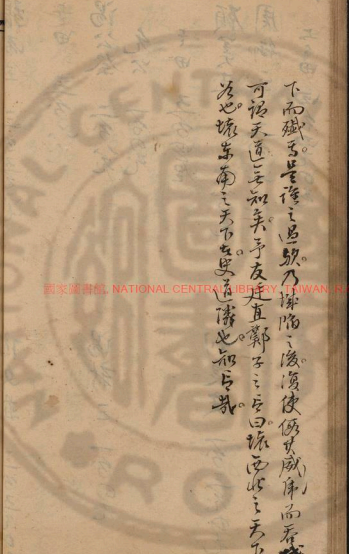 下而殲焉是誰之過歟乃城陷之後復使假其威
可謂天道無知矣予友廷直鄭子之言曰壞西北之天下
谷也壞東南之天下在史道鄰也知言哉
國家圖書館, NATIONAL CENTRAL LIBRARY, TAIWAN